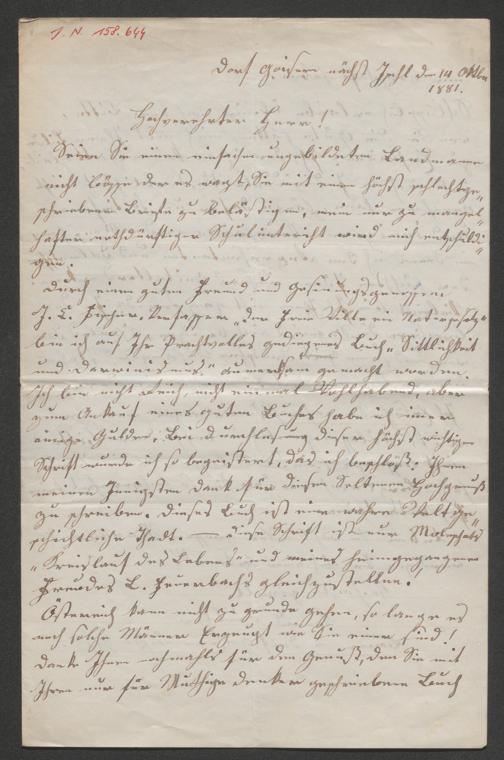 J. N. 158.644
Dorf Goisern nächst Ischl den 14 Oktbr
1881.
Hochverehrter Herr!
Seien Sie einem einfachen ungebildeten Landmanne
nicht böse der es wagt, Sie mit einem höchst schlechtge„
schriebenen Briefe zu belästigen, mein nur zu mangel
hafter nothdürftiger Schulunterricht wird mich entschuldi„
gen.
Durch einen guten Freund und Gesinnungsgenossen
J. L. Fischer. Verfasser „der Freie Wille ein Naturgesetz“
bin ich auf Ihr Prachtvolles gediegenes Buch „Sittlichkeit
und Darwinismus“ aufmerksam gemacht worden.
Ich bin nicht Reich, nicht einmal Wohlhabend, aber
zum Ankauf eines guten Buches habe ich immer
einige Gulden, bei Durchlesung dieser höchst wichtigen
Schrift wurde ich so begeistert, das ich beschloß: Ihnen
meinen Innigsten Dank für diesen Seltenen Hochgenuß
zu schreiben. Dieses Buch ist eine wahre Weltge„
schichtliche Thadt. — diese Schrift ist nur Moleschots
„Kreislauf des Lebens“ und meines heimgegangenen
Freundes L. Feuerbachs gleichzustellen!
Österreich kann nicht zu grunde gehen, so lange es
noch solche Männer Erzeugt wie Sie einer sind!
Danke Ihnen nochmahls für den Genuß, den Sie mit
Ihren nur für Muthige denker geschriebenen Buch